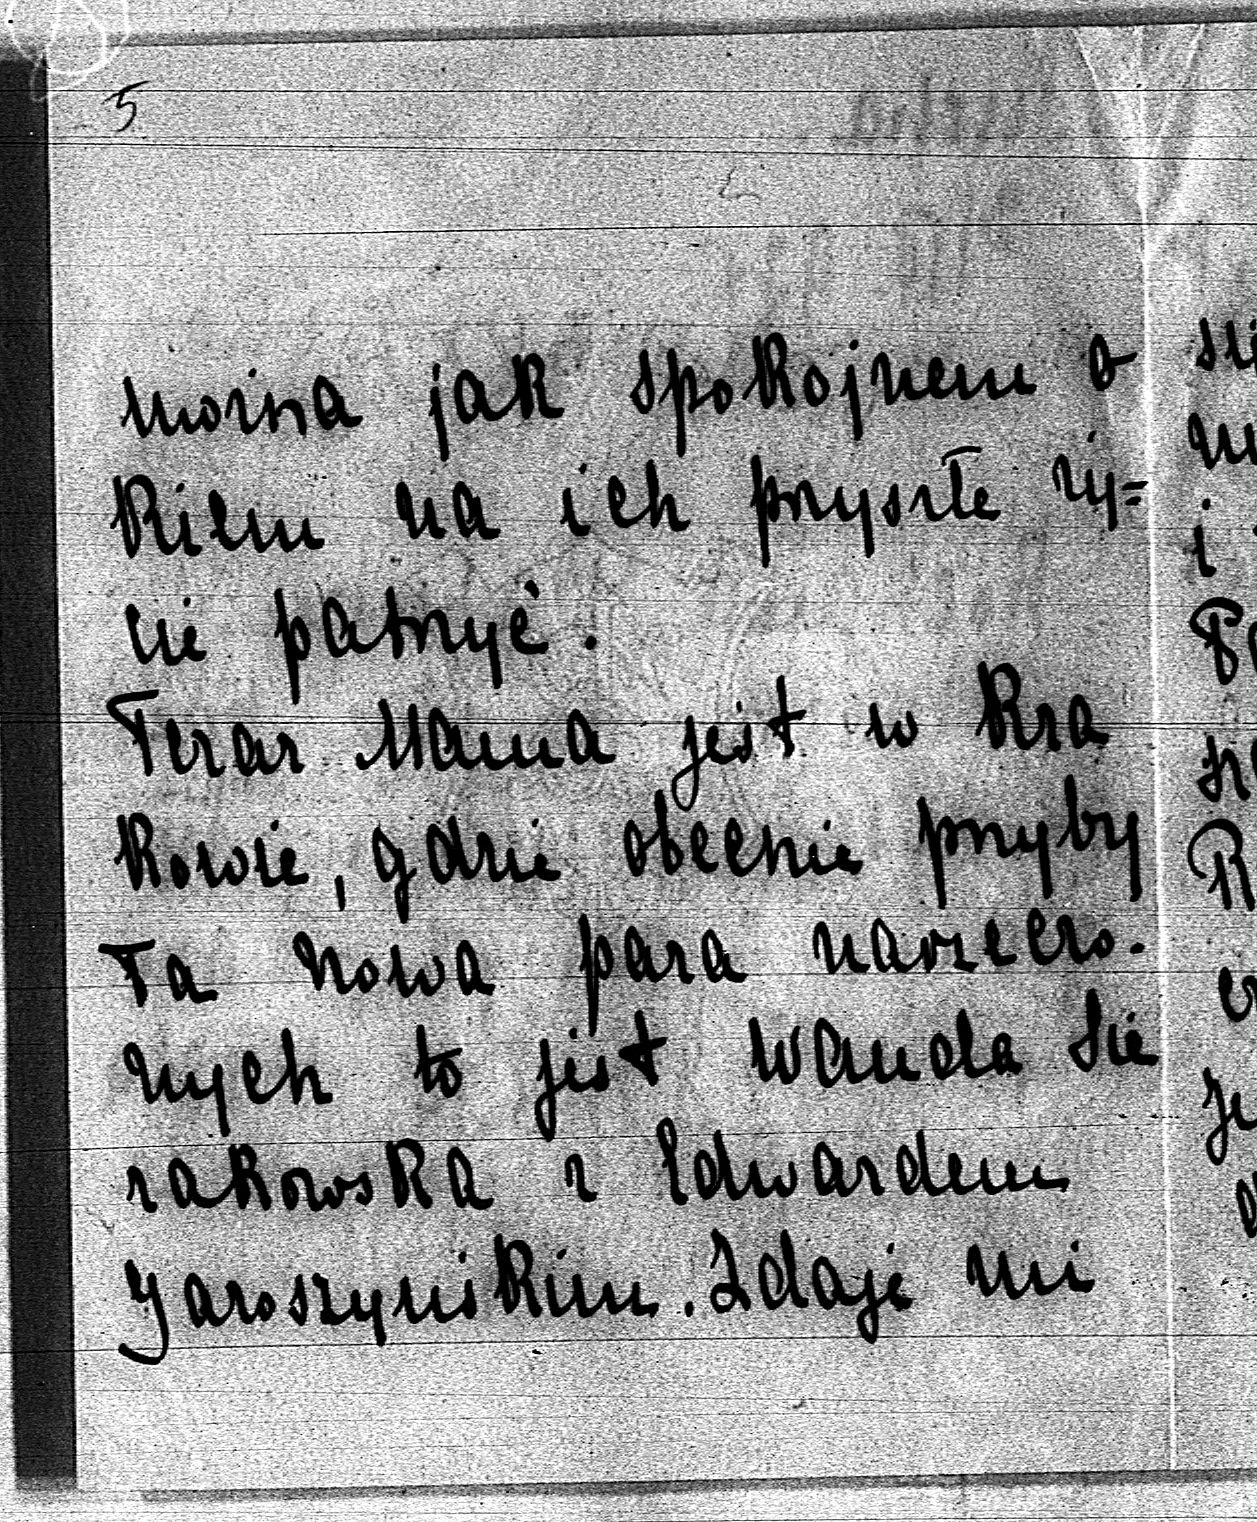 5
można jak spokojnem o
kiem na ich przyszłe ży=
cie patrzyć.
Teraz Mama jest w Kra
kowie, gdzie obecnie przyby
ła nowa para narzeczo.
nych to jest Wanda Sie
rakowska z Edwardem
Jaroszyńskim. Zdaje mi